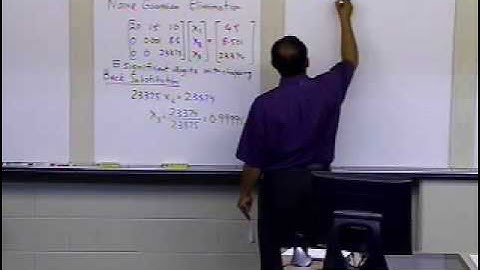 Naive Gaussian Elimination
[20 15 10] [x₁] [45]
[0 0.001 8.5] [x₂] = [8.501]
[0 0 23375] [x₃] [23374]
5 significant digits with chopping
Back Substitution
23375 x₃ = 23374
x₃ = 23374/23375 = 0.9999